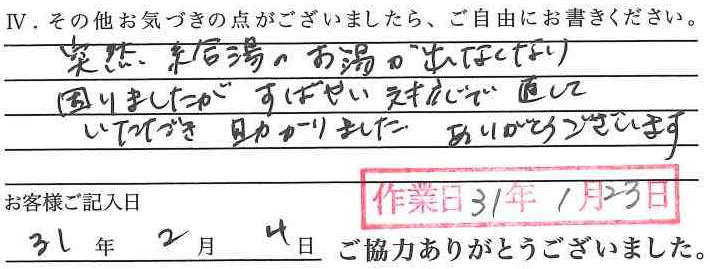 Ⅳ. その他お気づきの点がございましたら、ご自由にお書きください。
突然、給湯のお湯が出なくなり
困りましたが すばやい対応で 直して
いただき 助かりました ありがとうございます
作業日31年1月23日
お客様ご記入日
31年 2月 4日 ご協力ありがとうございました。